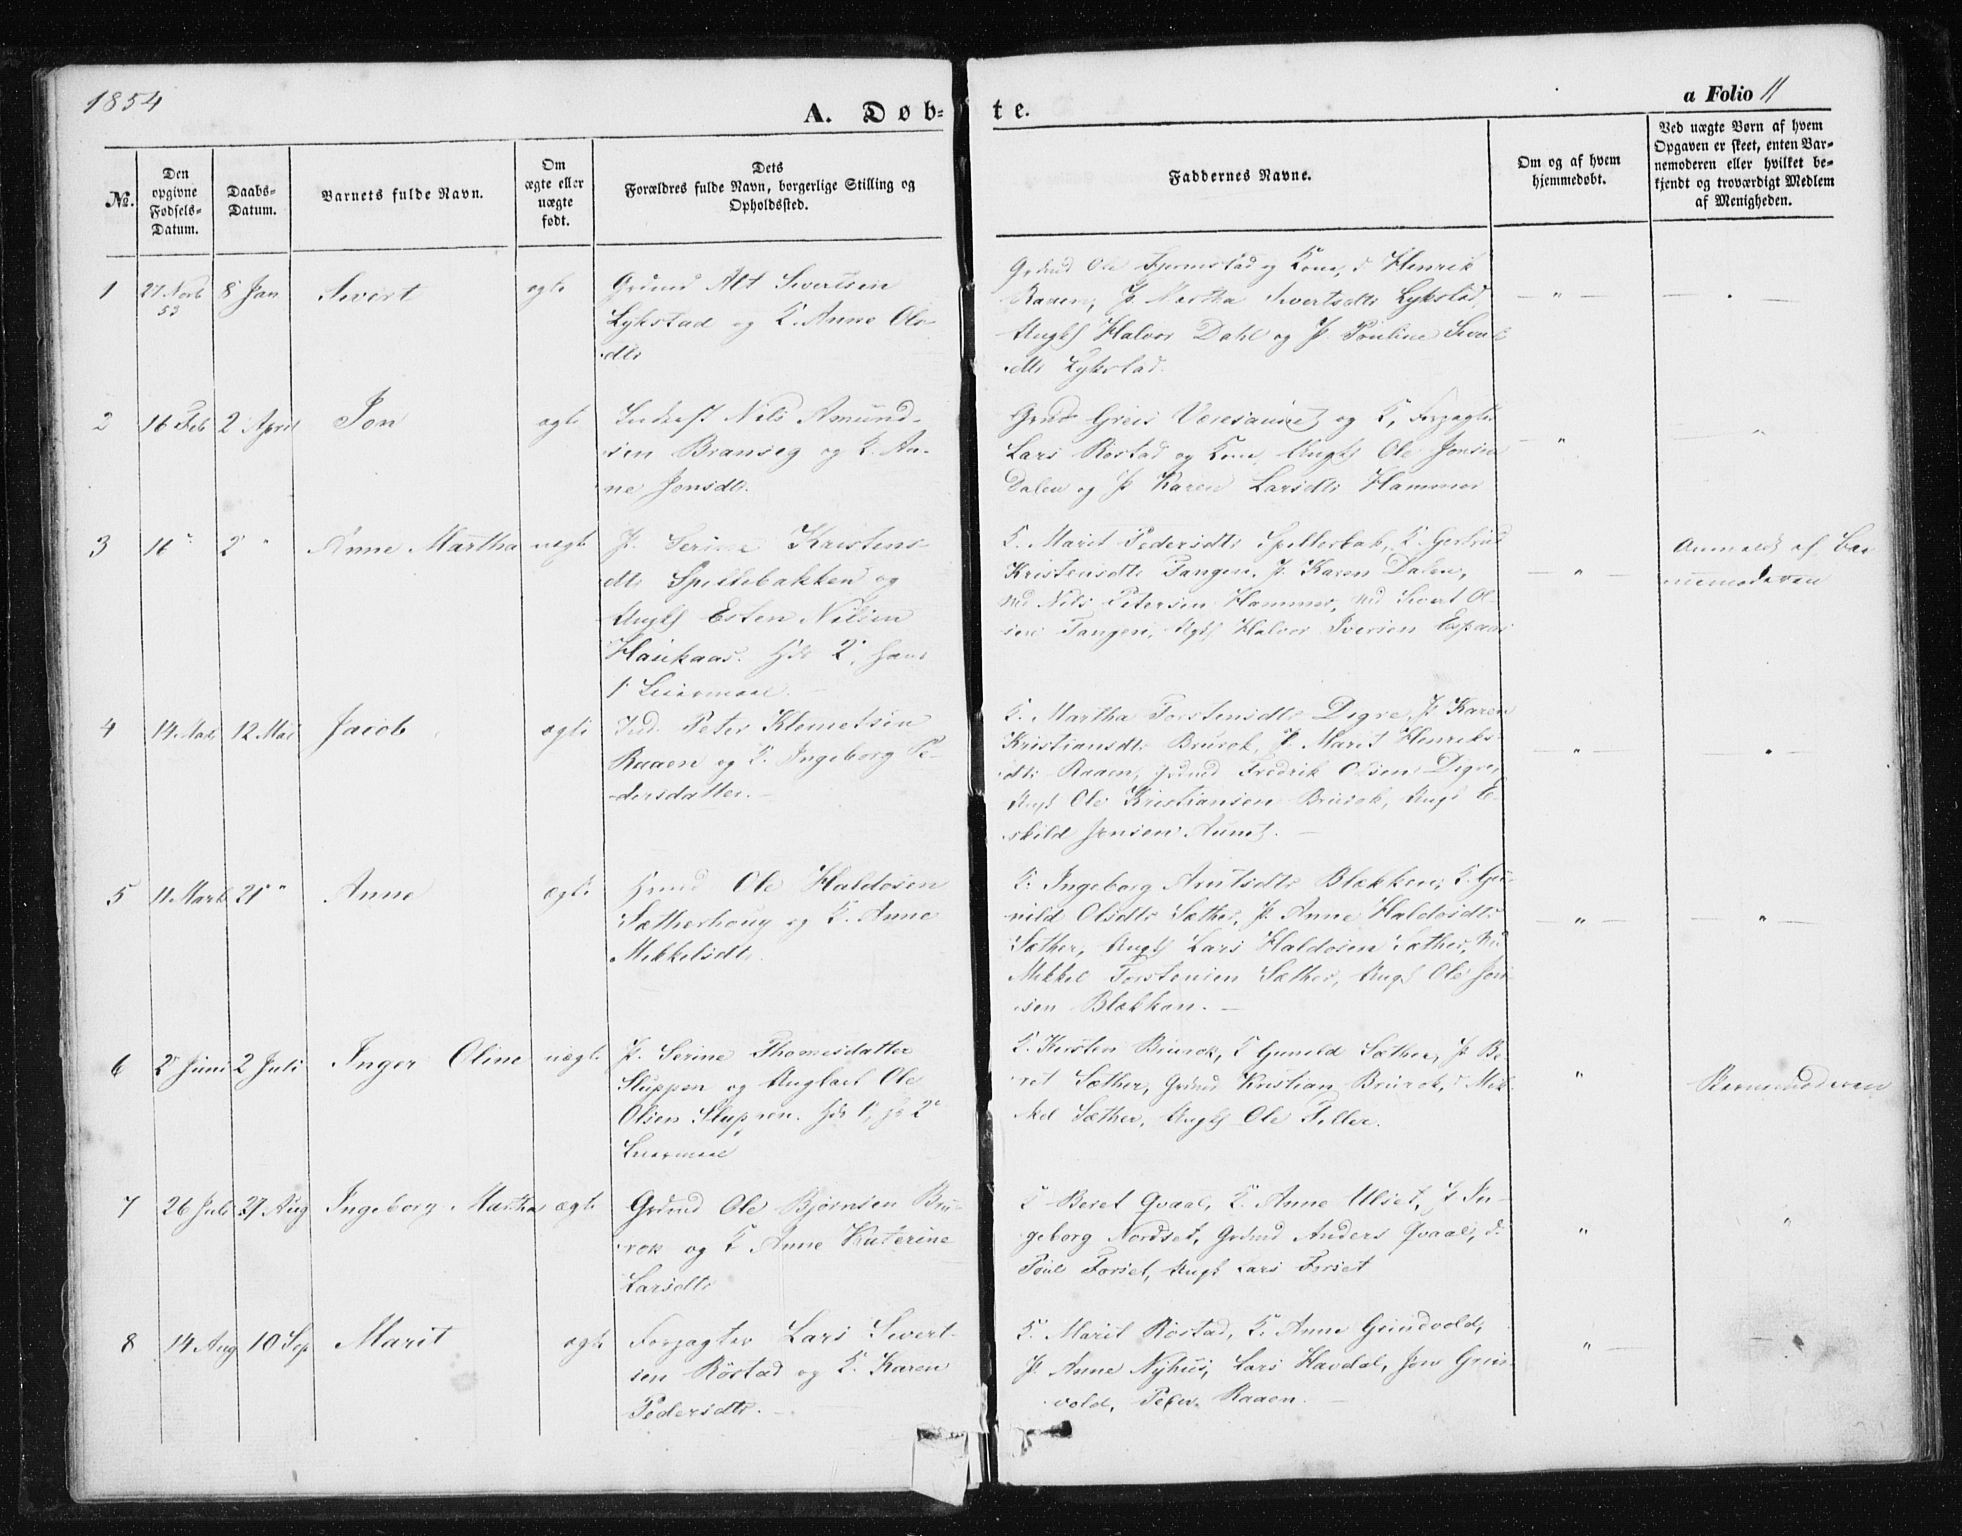 1854
A. Døb-
te.
a Folio 11
No.
Den opgivne Fødsels-Datum.
Daabs-Datum.
Barnets fulde Navn.
Om ægte eller uægte født.
Dets
Forældres fulde Navn, borgerlige Stilling og
Opholdssted.
Faddernes Navne.
Om og af hvem
hjemmedøbt.
Ved uægte Børn af hvem
Opgaven er skeet, enten Bar-
nemoderen eller hvilket be-
kjendt og troværdigt Medlem
af Menigheden.
1 27 Novb 53 8 Jan Sivert ægte
Grdmd Alt Sivertsen
Lykstad og K. Anne Ols-
dtr
Grdmd Ole Fjermstad og Kone, d Henrik
Raaen, P. Martha Sivertsdtr Lykstad,
Ungk Halvor Dahl og P. Pauline Sivert
dtr Lykstad.
2 16 Feb 2 April Jon ægte
Nils Amund-
sen Branseg og K. An-
ne Jonsdtr.
og K,
Lars Røstad og Kone, Ungk Ole Jonsen
Dalen og P. Karen Larsdtr Hammer
3 16 " 2 " Anne Martha uægte
P. Serine Kristens-
dtr Spellebakken og
Ungk Esten Nilsen
Haukaas. Hds 2, hans
1 Leiermaal.
K. Marit Pedersdtr Spellebak, K. Gertrud
Kristensdtr Tangen, P. Karen Dalen,
Md Nils Petersen Hammer, Md Sivert Ol-
sen Tangen, Ungk Halvor Iversen Espaas
Anmeldt af Bar
nemoderen
4 14 12 Mai Jacob ægte
Ind. Peter Klemetsen
Raaen og K. Ingeborg Pe-
dersdatter.
K. Martha Torstensdtr Digre, P. Karen
Kristiansdtr Brurok, P. Marit Henriks-
dtr Raaen, Grdmd Fredrik Olsen Digre,
Ungk Ole Kristiansen Brurok, Ungk E-
skild Jensen Aunet.
5 11 Marts 21 " Anne ægte
Grdmd Ole Haldosen
Sætherhoug og K. Anne
Mikkelsdtr.
K. Ingeborg Arntsdtr Blækken, K. Gu-
nild Olsdtr Sæther, P. Anne Haldosdtr
Sæther, Ungk Lars Haldosen Sæther,
Mikkel Torstensen Sæther, Ungk Ole Jon-
sen Blekkan.
6 2 Juni 2 Juli Inger Oline uægte
P. Serine Thomesdatter
Sluppen og Ungkarl Ole
Olsen Sluppen. Hds 1, hs 2
Leiermaal
K. Kirsten Brurok, K Gunild Sæther, P Be-
ret Sæther, Grdmd Kristian Brurok, d Mik-
kel Sæther, Ungk Ole Tiller.
Barnemoderen
7 26 Juli 27 Aug Ingeborg Martha ægte
Grdmd Ole Bjørnsen Bru-
rok og K Anne Katerine
Larsdtr
K Beret Qvaal, K. Anne Ulset, P In-
geborg Nordset, Grdmd Anders Qvaal, d.
Poul Forset, Ungk Lars Forset
8 14 Aug 10 Sep Marit ægte
Forpagter Lars Sivert-
sen Røstad og K. Karen
Pedersdtr.
K. Marit Røstad, K. Anne Grindvold,
P. Anne Nyhus, Lars Havdal, Jon Grin-
vold, Peter Raaen.